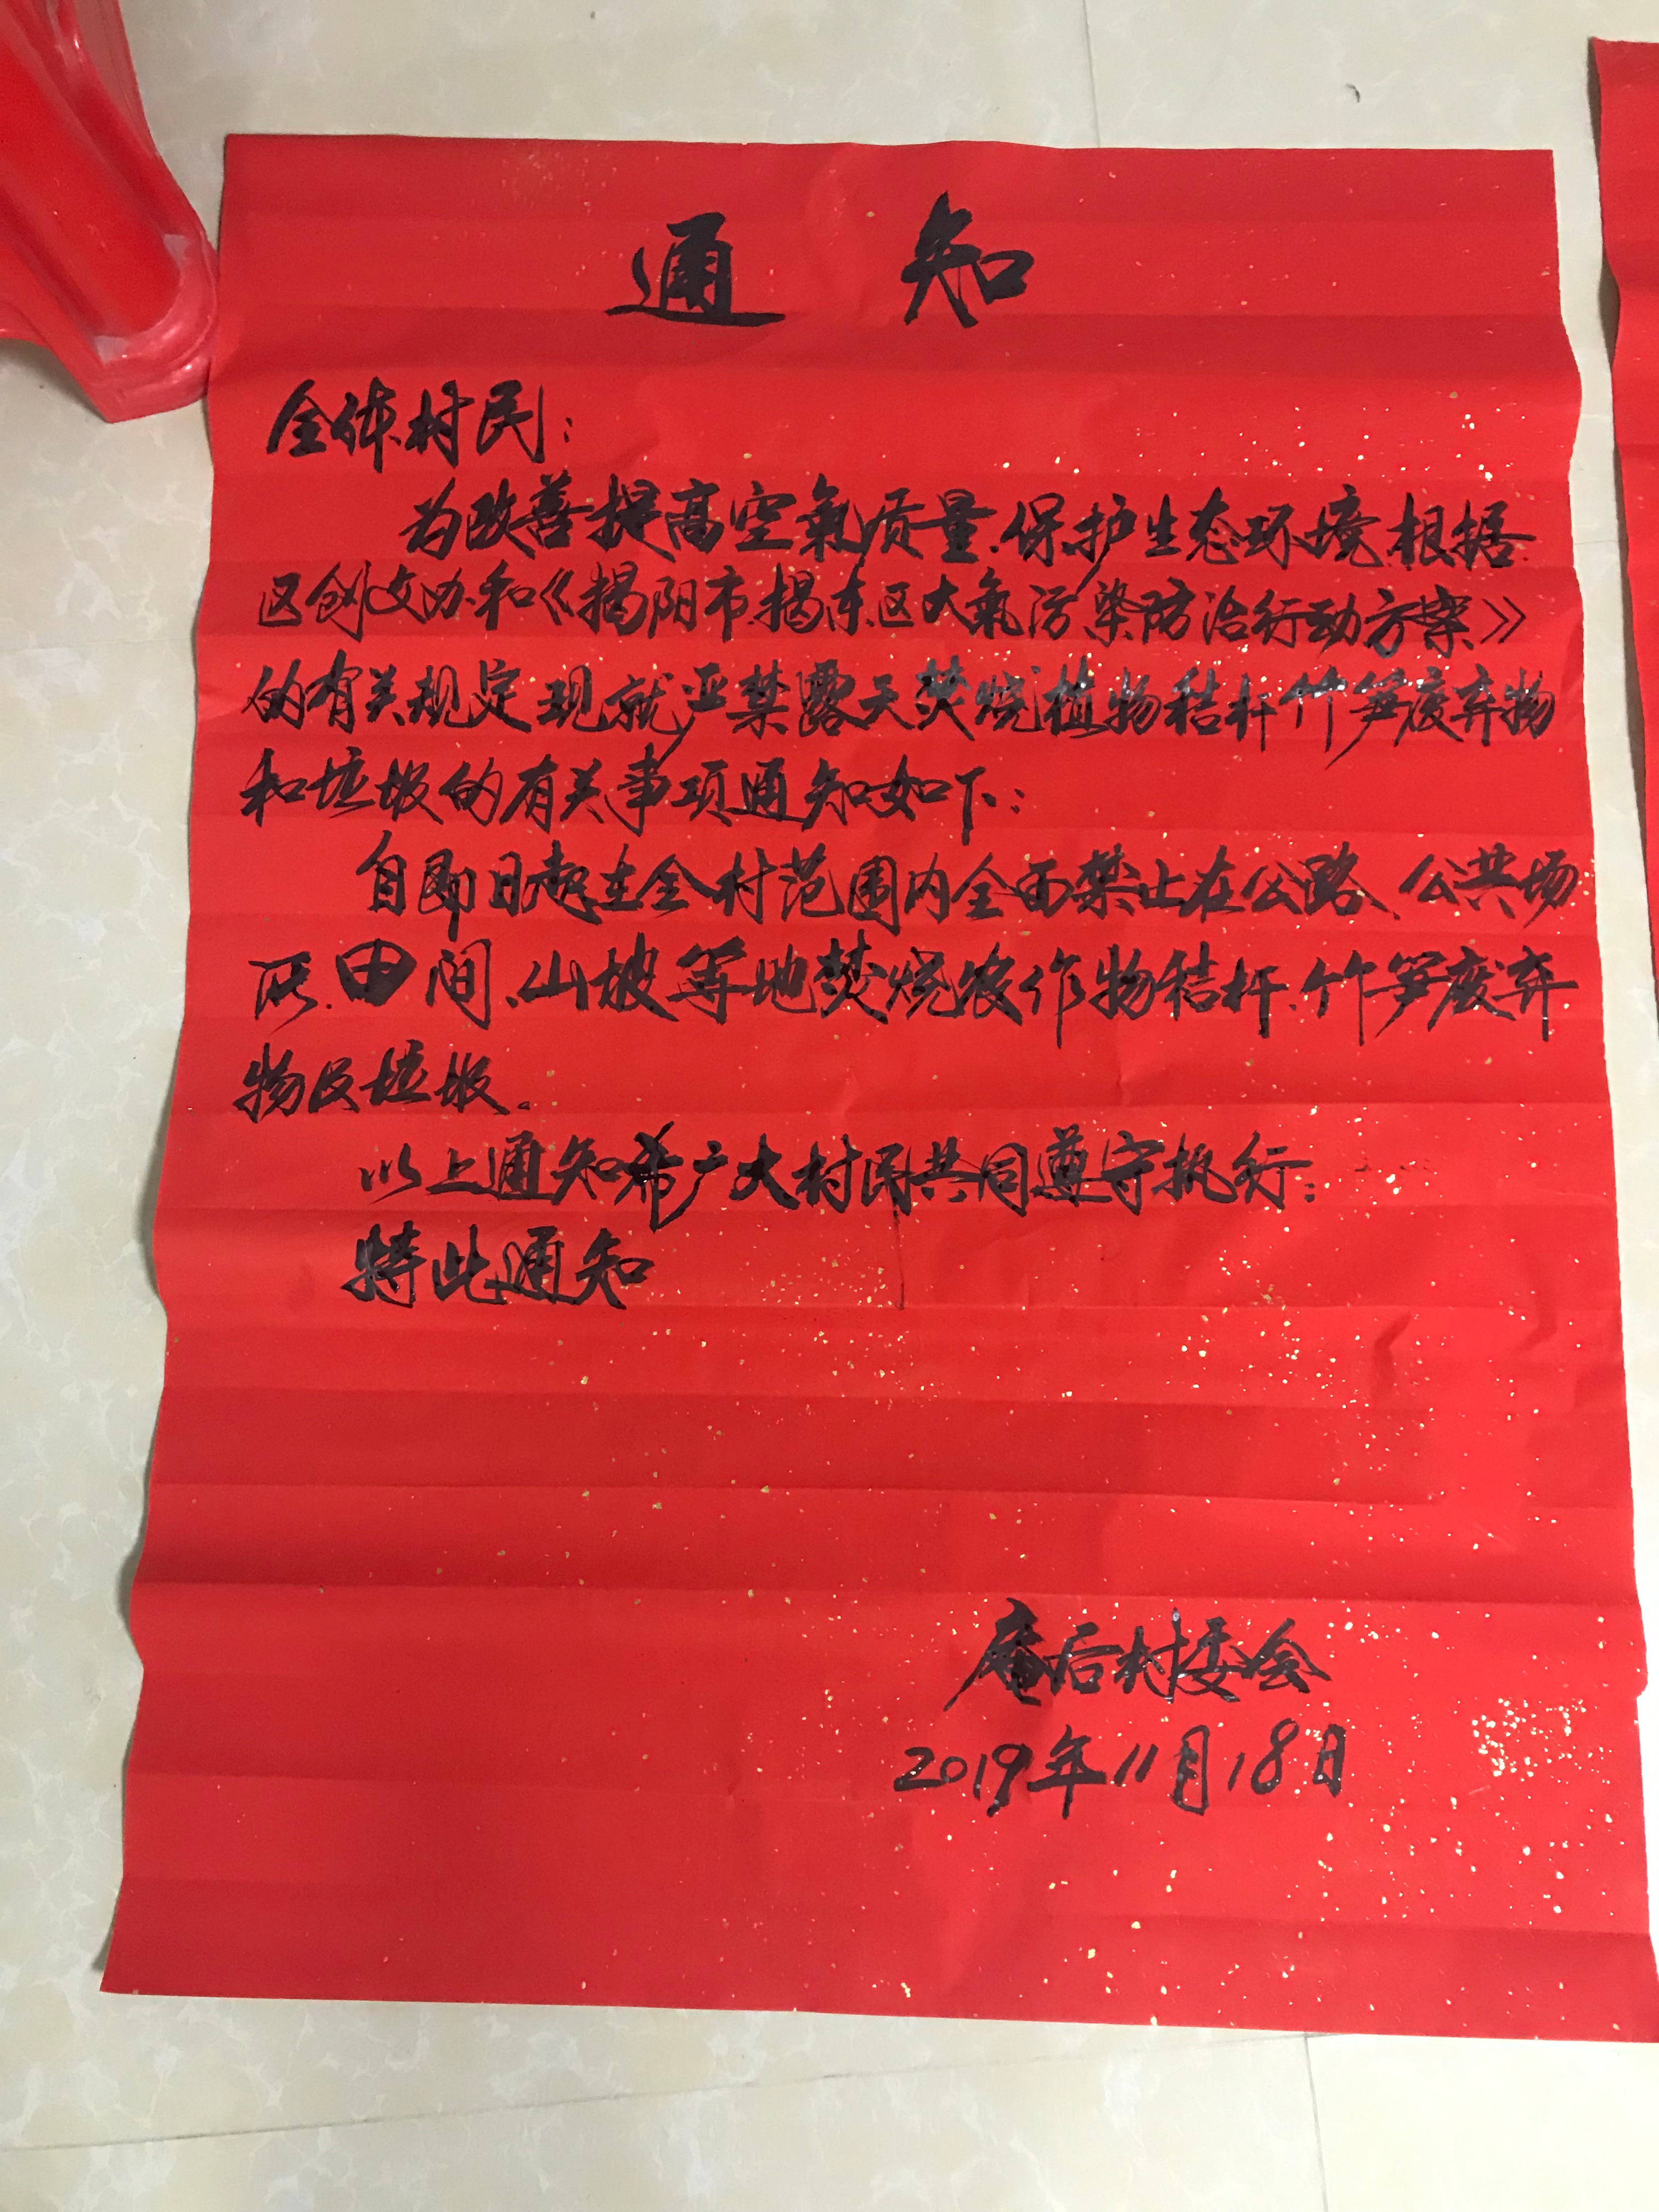 通知
全体村民：
为改善提高空氣质量、保护生态环境、根据
区创文办和《揭阳市揭东区大氣污染防治行动方案》
的有关规定现就严禁露天焚烧植物秸杆竹笋废弃物
和垃圾的有关事项通知如下：
自即日起在全村范围内全面禁止在公路、公共场
所、田间、山坡等地焚烧农作物秸杆、竹笋废弃
物及垃圾。
以上通知希广大村民共同遵守执行：
特此通知
庵后村委会
2019年11月18日